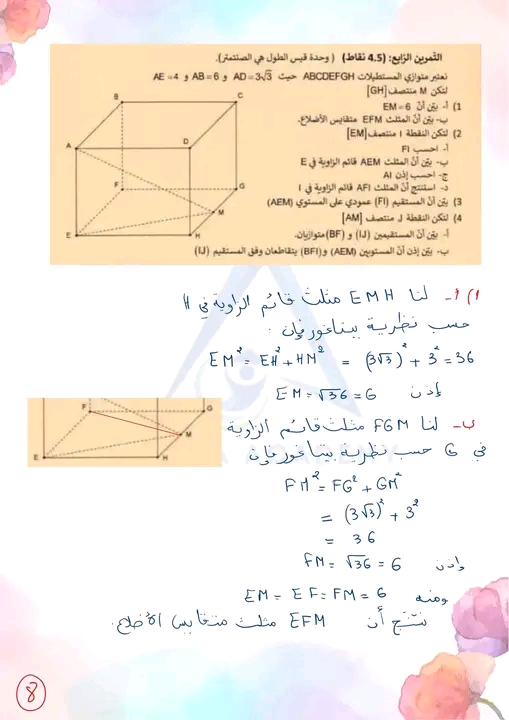 التمرين الرابع: (4.5 نقاط) ( وحدة قيس الطول هي الصنتمتر).
نعتبر متوازي المستطيلات ABCDEFGH حيث AD=3√3 و AB=6 و AE=4
لتكن M منتصف [GH]
1) أ- بيّن أنّ EM=6
ب- بيّن أنّ المثلث EFM متقايس الأضلاع.
2) لتكن النقطة I منتصف [EM]
أ- احسب FI
ب- بيّن أنّ المثلث AEM قائم الزاوية في E
ج- احسب إذن AI
د- استنتج أنّ المثلث FIA قائم الزاوية في I
3) بيّن أنّ المستقيم (FI) عمودي على المستوي (AEM)
4) لتكن النقطة J منتصف [AM]
أ- بيّن أنّ المستقيمين (IJ) و (BF) متوازيان.
ب- بيّن إذن أنّ المستويين (AEM) و(BFI) يتقاطعان وفق المستقيم (IJ)
B
C
A
D
F
G
M
E
H
1) أ- لنا EMH مثلث قائم الزاوية في H
حسب نظرية بيتاغور فإن :
EM² = EH² + HM² = (3√3)² + 3² = 36
إذن EM = √36 = 6
ب- لنا FGM مثلث قائم الزاوية
في G حسب نظرية بيتاغور فإن
F
G
M
E
H
FM² = FG² + GM²
= (3√3)² + 3²
= 36
إذن FM = √36 = 6
ومنه EM = EF = FM = 6
نتتج أن EFM مثلث متقايس الأضلاع.
8